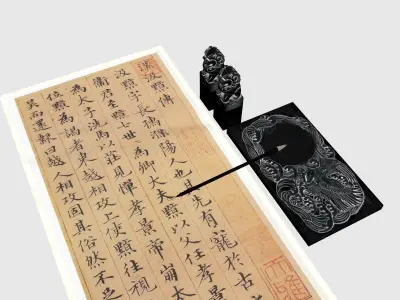 漢汲黯傳
汲黯字長孺濮陽人也其先有寵於古
衛君至黯七世為卿大夫黯以父任孝景
為太子洗馬以莊見憚孝景帝崩太
位黯為謁者東越相攻上使黯往視
吳而還報曰越人相攻固其俗然不足